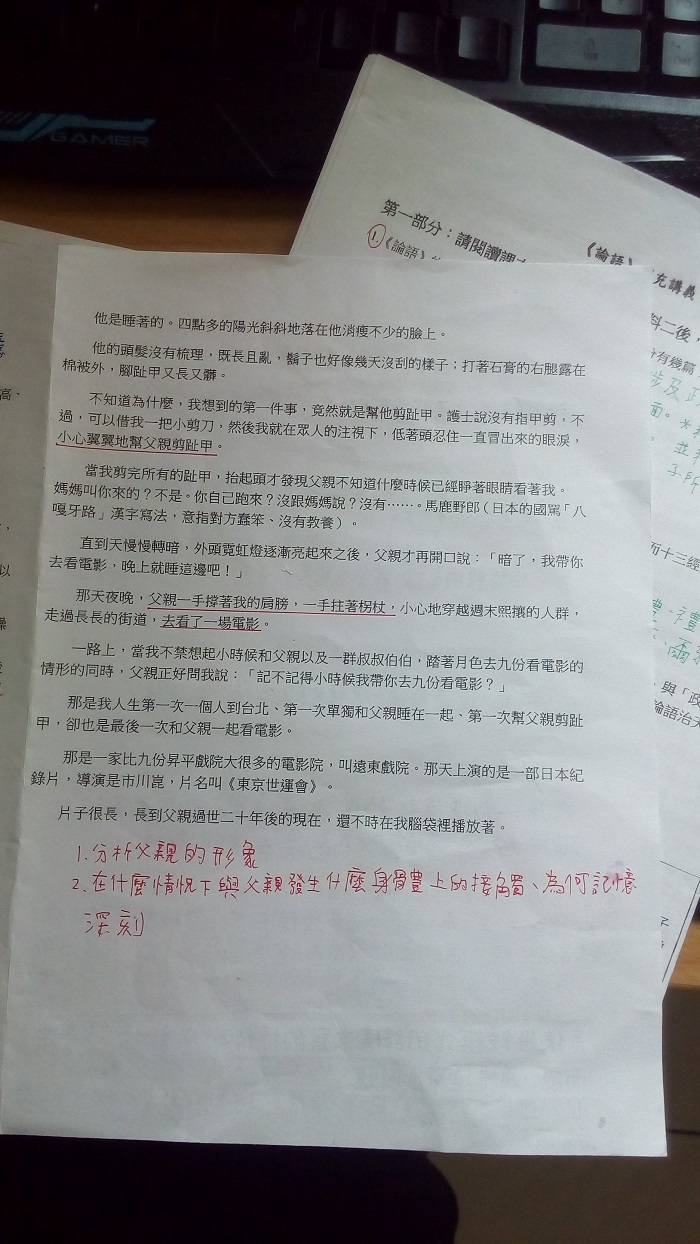 GAMER
第一部分：請閱讀課
《論語》
充講義
1.《論語》
料二後，
他是睡著的。四點多的陽光斜斜地落在他消瘦不少的臉上。
他的頭髮沒有梳理，既長且亂，鬍子也好像幾天沒刮的樣子；打著石膏的右腿露在
棉被外，腳趾甲又長又髒。
不知道為什麼，我想到的第一件事，竟然就是幫他剪趾甲。護士說沒有指甲剪，不
過，可以借我一把小剪刀，然後我就在眾人的注視下，低著頭忍住一直冒出來的眼淚，
小心翼翼地幫父親剪趾甲。
當我剪完所有的趾甲，抬起頭才發現父親不知道什麼時候已經睜著眼睛看著我。
媽媽叫你來的？不是。你自己跑來？沒跟媽媽說？沒有……。馬鹿野郎（日本的國罵「八
嘎牙路」漢字寫法，意指對方蠢笨、沒有教養）。
直到天慢慢轉暗，外頭霓虹燈逐漸亮起來之後，父親才再開口說：「暗了，我帶你
去看電影，晚上就睡這邊吧！」
那天夜晚，父親一手撐著我的肩膀，一手拄著柺杖，小心地穿越週末熙攘的人群，
走過長長的街道，去看了一場電影。
一路上，當我不禁想起小時候和父親以及一群叔叔伯伯，踏著月色去九份看電影的
情形的同時，父親正好問我說：「記不記得小時候我帶你去九份看電影？」
那是我人生第一次一個人到台北、第一次單獨和父親睡在一起、第一次幫父親剪趾
甲，卻也是最後一次和父親一起看電影。
那是一家比九份昇平戲院大很多的電影院，叫遠東戲院。那天上演的是一部日本紀
錄片，導演是市川崑，片名叫《東京世運會》。
片子很長，長到父親過世二十年後的現在，還不時在我腦袋裡播放著。
1.分析父親的形象
2.在什麼情況下與父親發生什麼身體上的接觸、為何記憶
深刻
而十三經